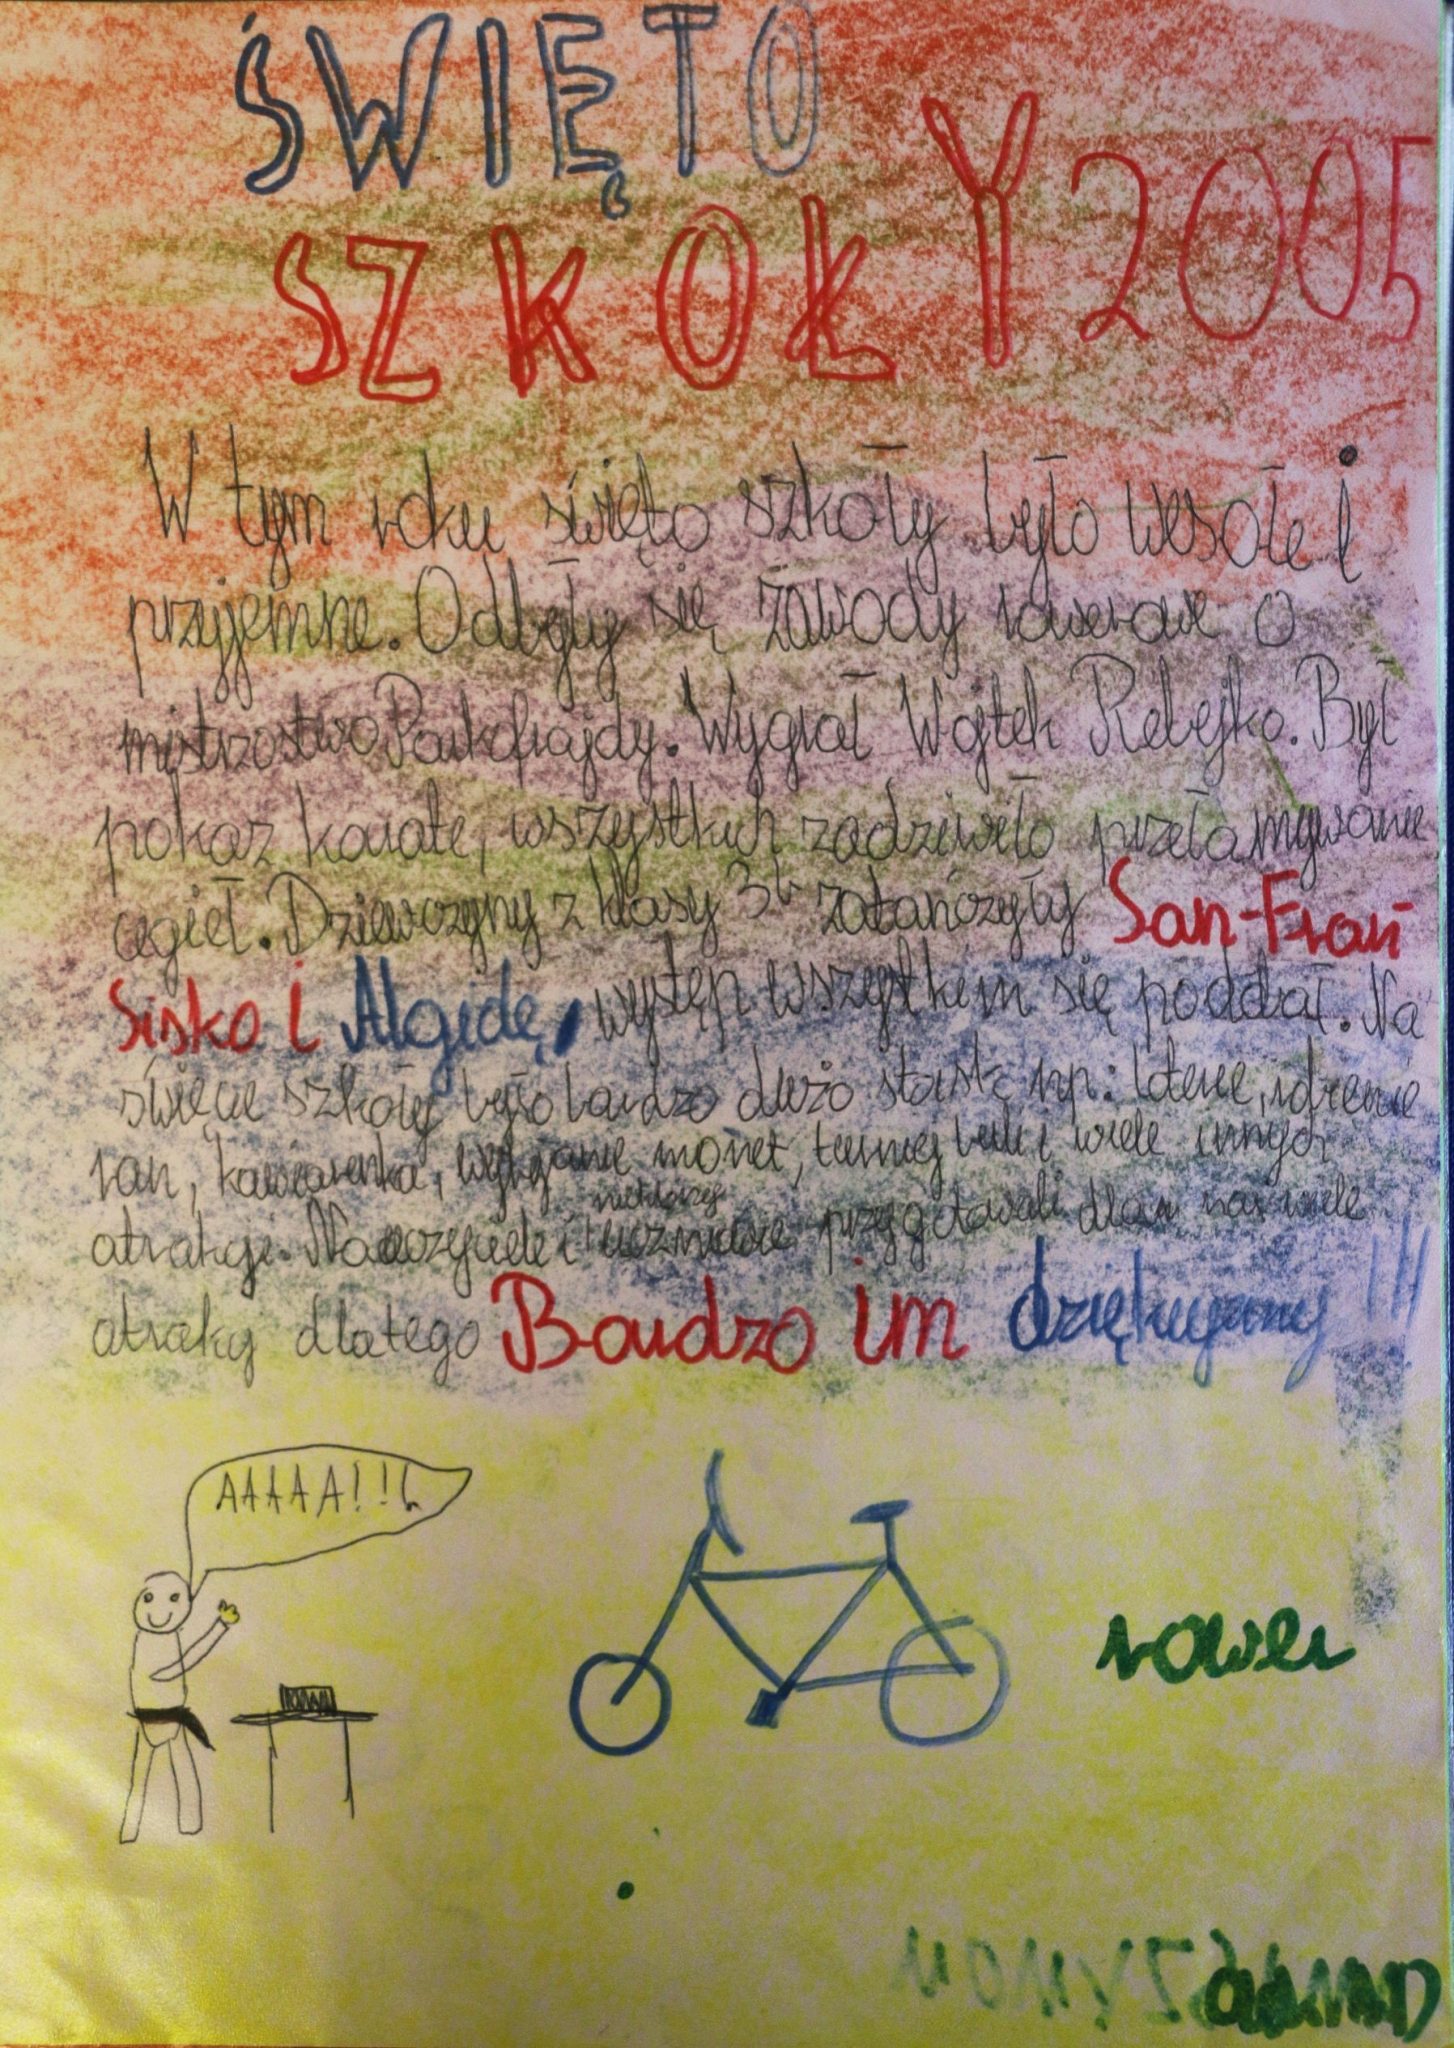 ŚWIĘTO
SZKOŁY 2005
W tym roku święto szkoły było wesołe i
przyjemne. Odbyły się zawody rowerowe o
mistrzostwo Parkofrajdy. Wygrał Wojtek Rebejko. Był
pokaz karate, wszystkich zadziwiło przełamywanie
cegieł. Dziewczyny z klasy 3b zatańczyły San-Fran
Sisko i Algidę, występ wszystkim się podobał. Na
święcie szkoły było bardzo dużo stoisk np: loterie,
ran, kawiarenka, monet, turniej i wiele innych
atrakcji. Nauczyciele i niektórzy uczniowie przygotowali dla nas wiele
atrakcji dlatego Bardzo im dziękujemy !!!
AAAAA!!!
rower